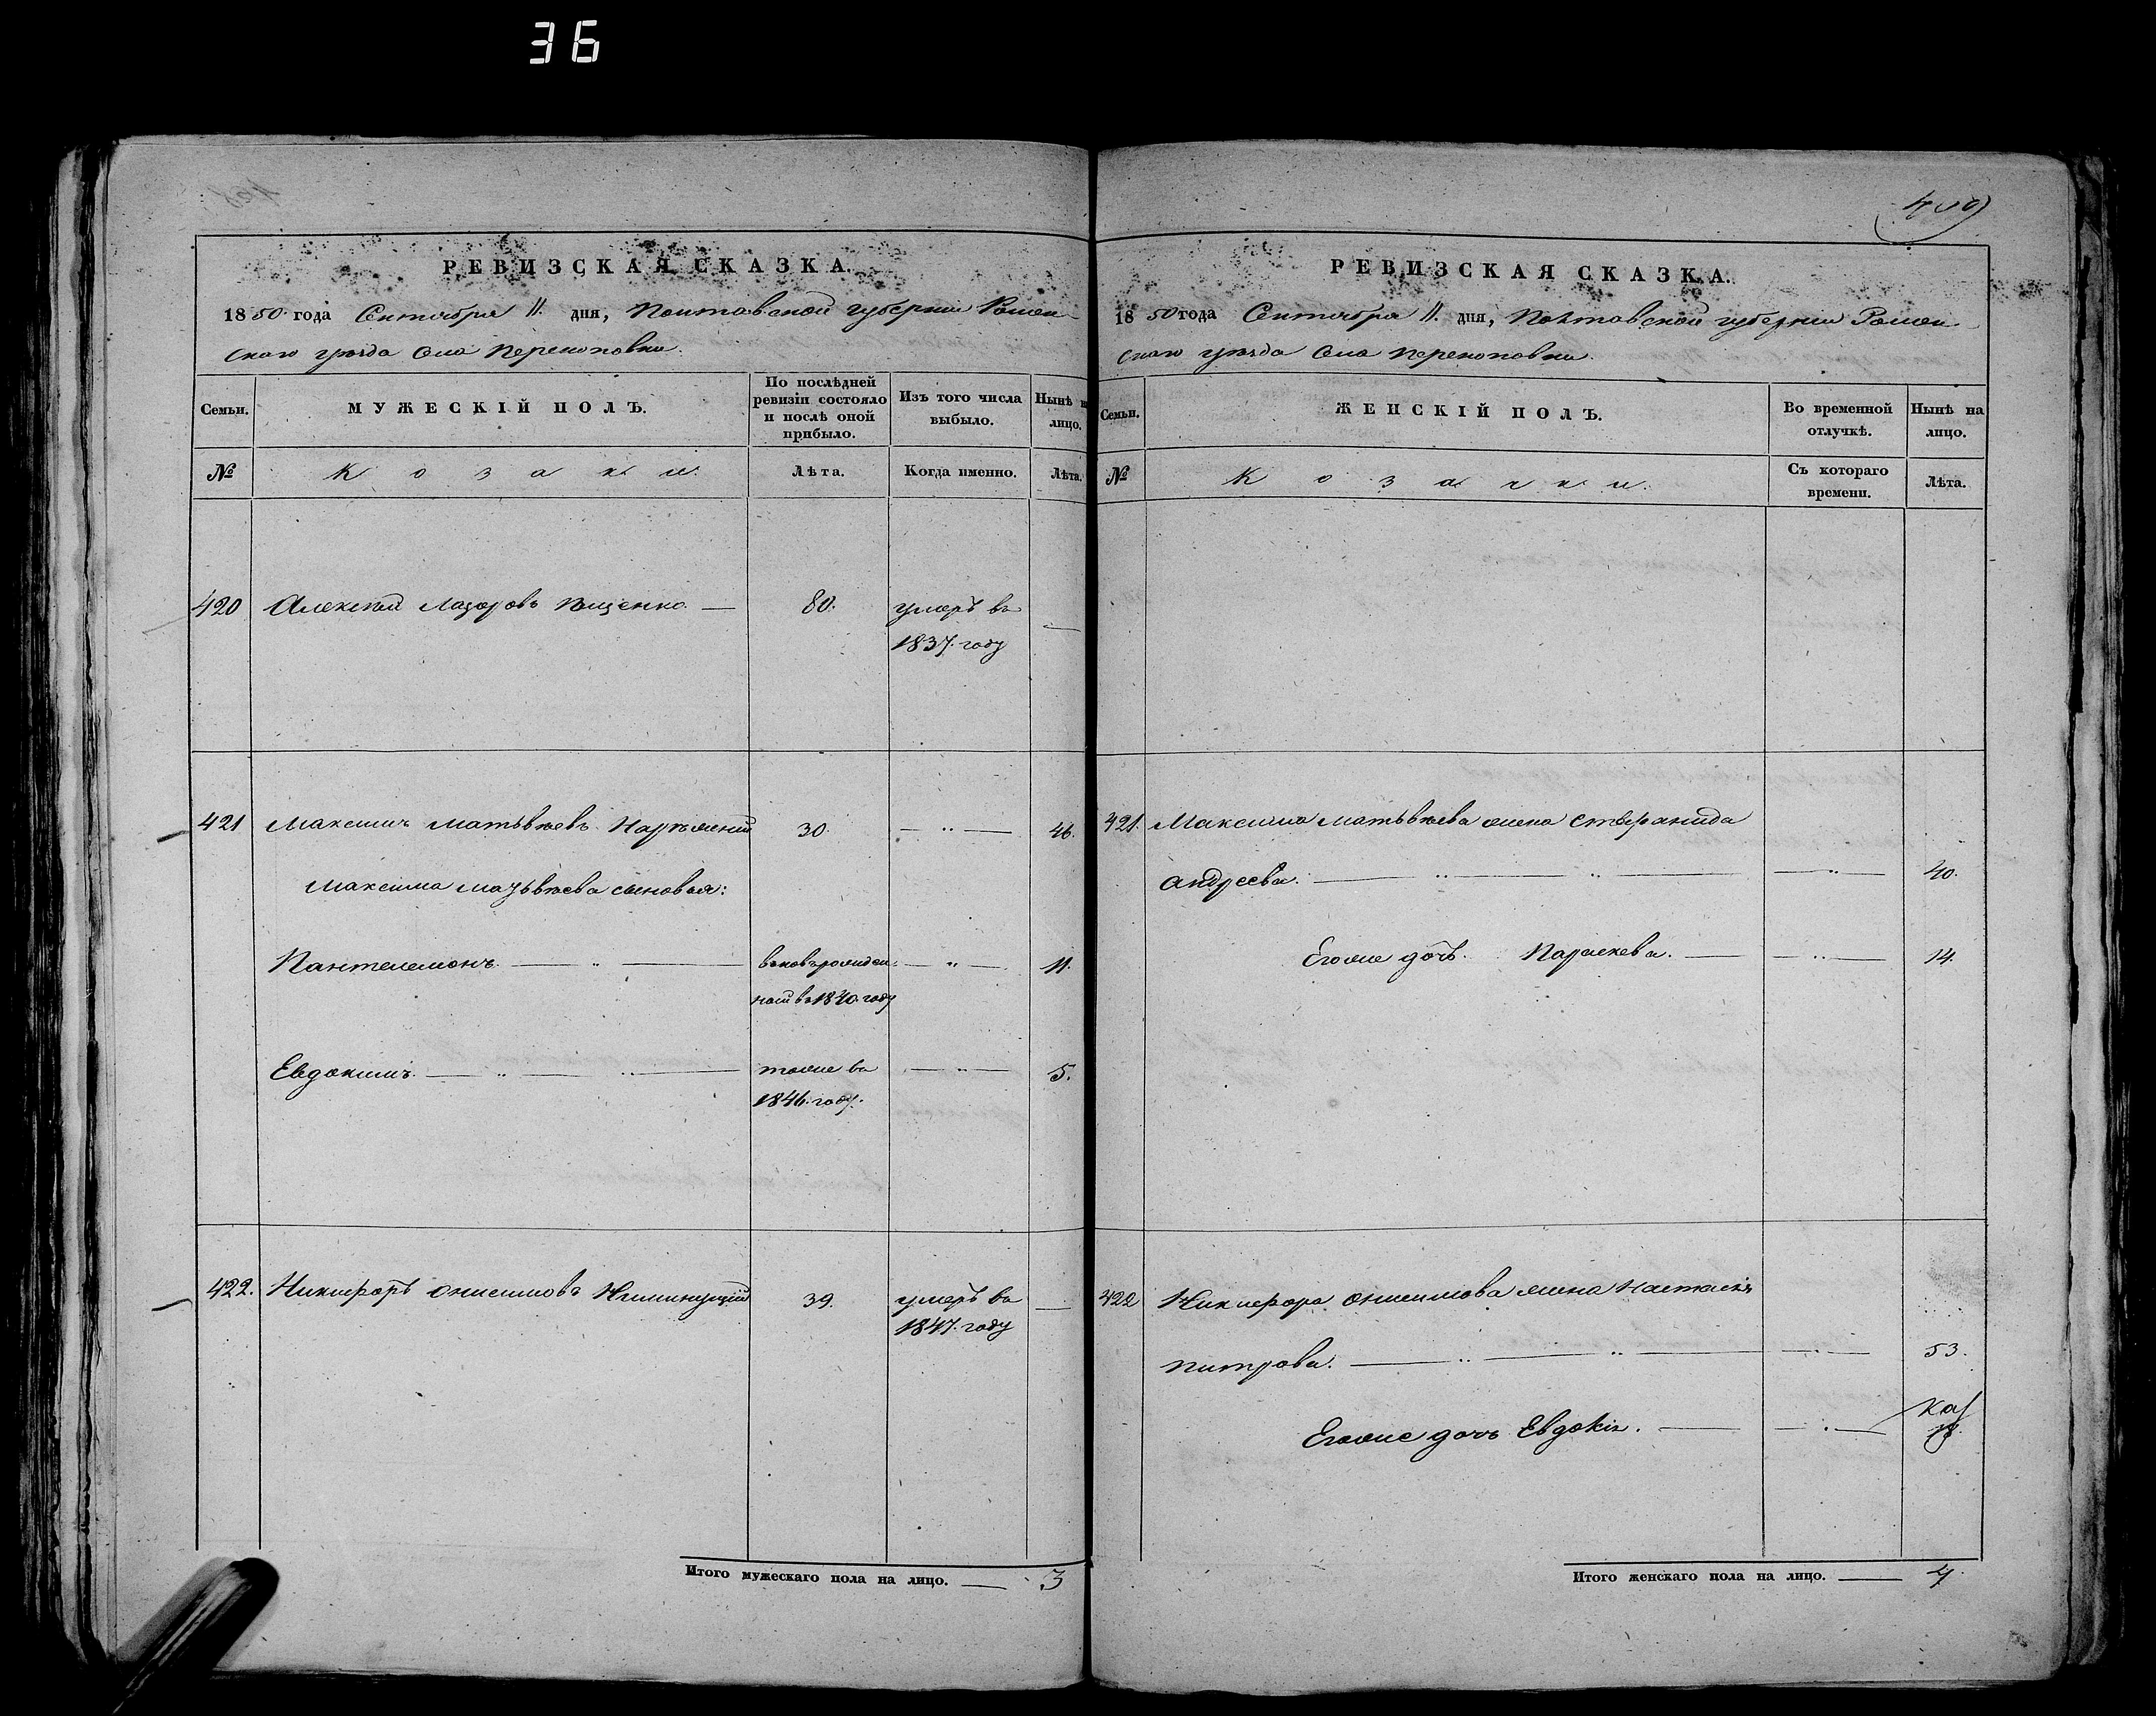 36
409
РЕВИЗСКАЯ СКАЗКА.
1850 года Сентября 11. дня, Полтавской губернии Ромен-
скаго уѣзда села Перекоповки.
Семьи.
МУЖЕСКІЙ ПОЛЪ.
По послѣдней ревизіи состояло и послѣ оной прибыло.
Изъ того числа выбыло.
Нынѣ на лицо.
№
Козаки.
Лѣта.
Когда именно.
Лѣта.
420 Алексѣй Лазаровъ Ищенко. — 80. умеръ въ —
1837. году
421 Максимъ Матьвѣевъ 30. — " — 46.
Максима Матьвѣева сыновья:
Пантелемонъ. — " — вновьрожден- — " — 11.
ной въ 1840. году
Евдокимъ. — " — " — тоже въ — " — 5.
1846. году.
422. Никифоръ Онисимовъ 39. умеръ въ —
1847. году
Итого мужескаго пола на лицо. — 3
РЕВИЗСКАЯ СКАЗКА.
1850 года Сентября 11. дня, Полтавской губернии Ромен-
скаго уѣзда села Перекоповки.
Семьи.
ЖЕНСКІЙ ПОЛЪ.
Во временной отлучкѣ.
Нынѣ на лицо.
№
Козачки.
Съ котораго времени.
Лѣта.
421. Максима Матьвѣева жена Стефанида
Андреева. — " — " — — " — 40.
Егоже дочь. Параскева. — — " — 14.
422 Никифора Онисимова жена Настасія
Питрова. — " — " — — " — 53.
Егоже дочь Евдокія. — — " — 18.
Итого женскаго пола на лицо. — 4.